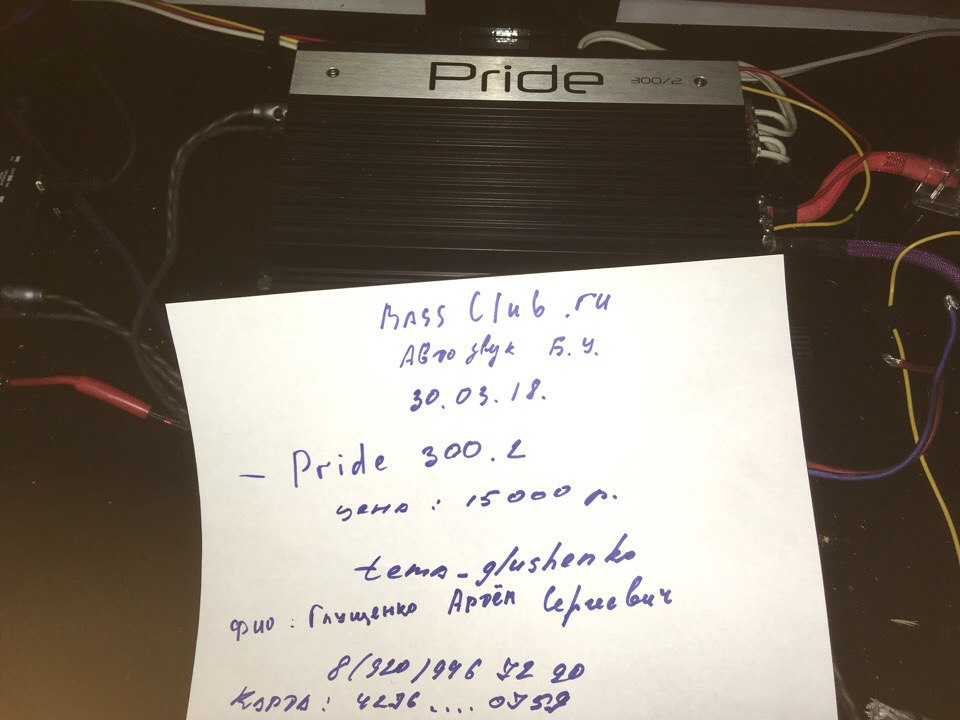 Pride 300/2
Bass Club.ru
Автозвук Б.У.
30.03.18.
- Pride 300.2
цена: 15000 р.
tema-glushenko
фио: Глущенко Артём Сергеевич
8(920)946 72 20
Карта: 4276....0759